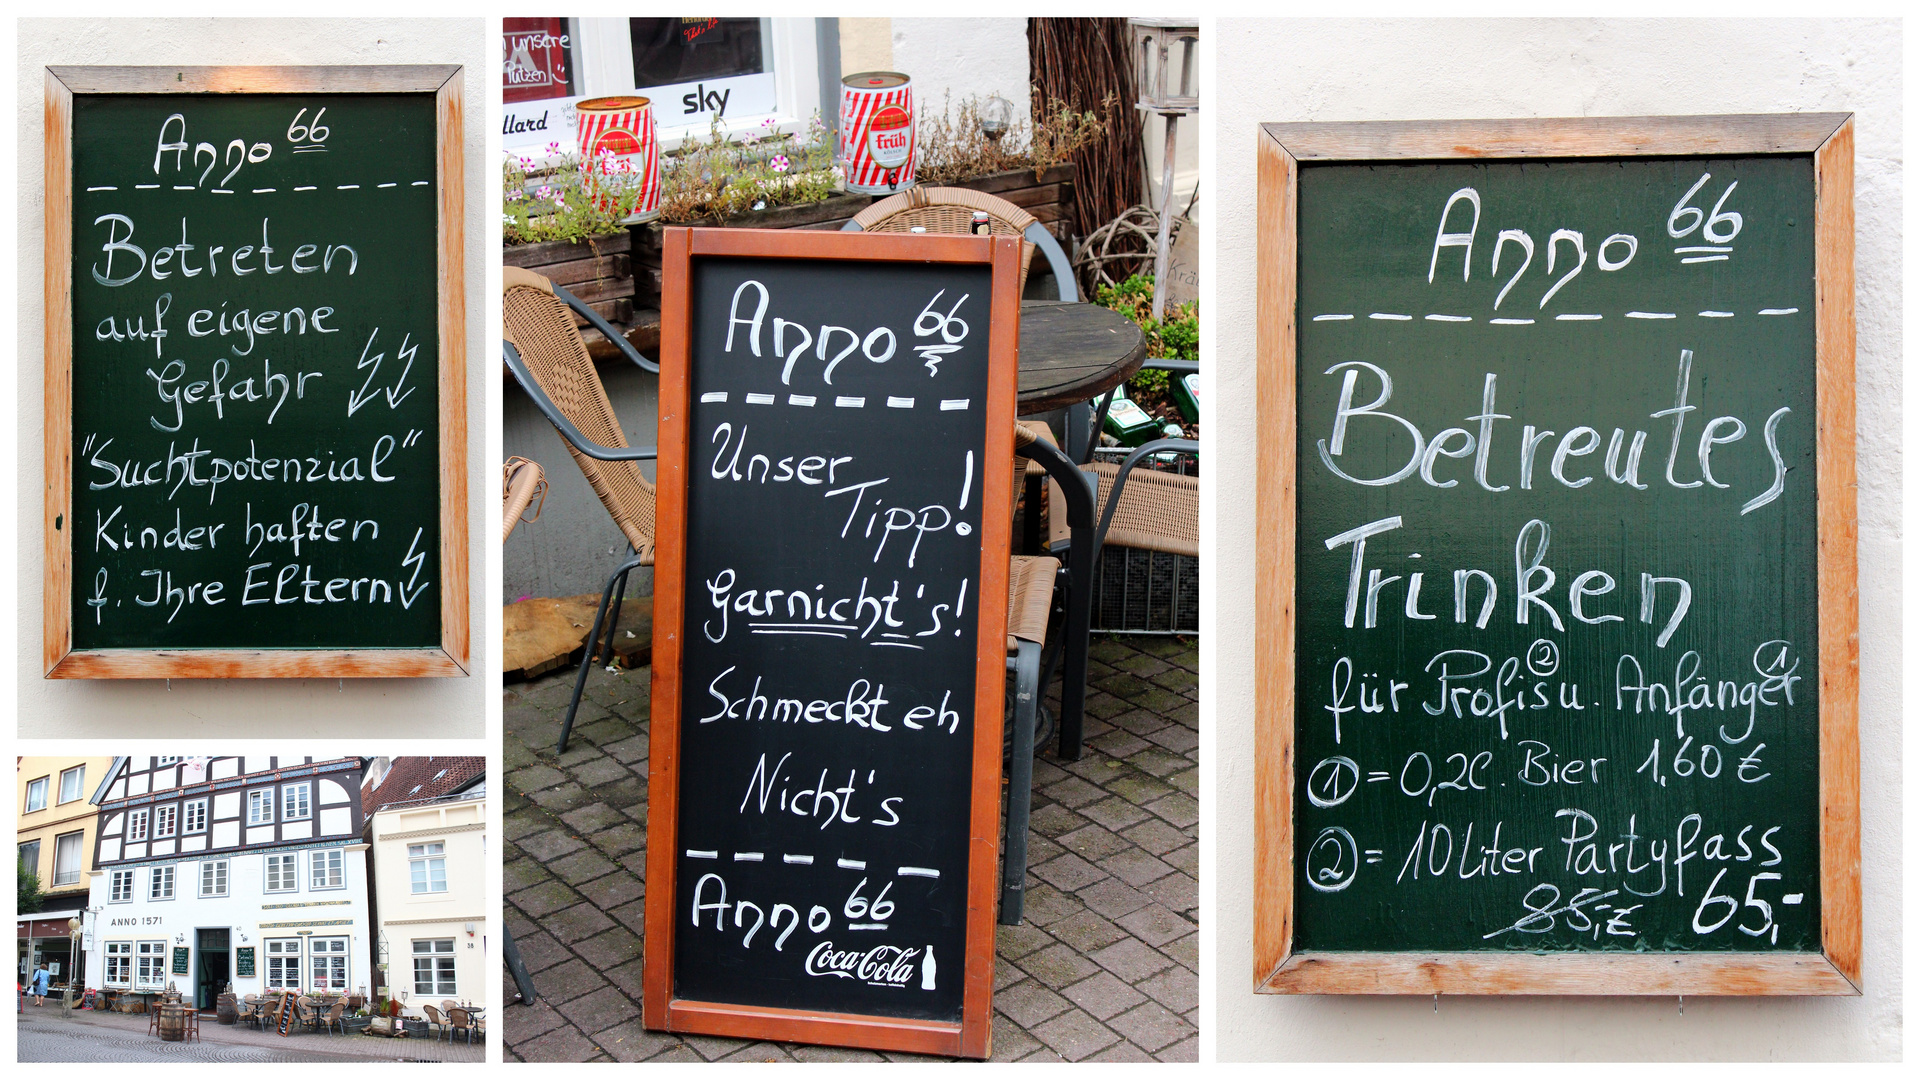 Anno 66
Betreten
auf eigene
Gefahr
"Suchtpotenzial"
Kinder haften
f. Ihre Eltern
ANNO 1571
unsere
Putzen
llard
sky
früh
Anno 66
Unser
Tipp!
Garnicht's!
Schmeckt eh
Nicht's
Anno 66
Coca-Cola
Anno 66
Betreutes
Trinken
für Profis ② u. Anfänger ①
① = 0,2l. Bier 1,60 €
② = 10 Liter Partyfass
85,-€ 65,-